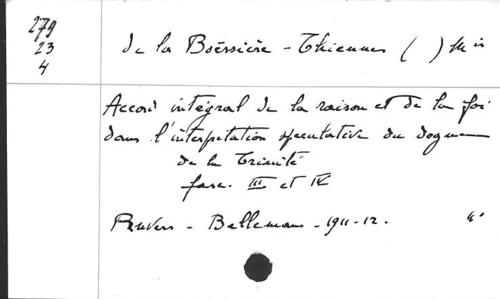 279
23
4
de la Boëssière - Thiennes ( ) Mis
Accord intégral de la raison et de la foi
dans l'interpétation speculative du dogme
de la Trinité
fasc. III et IV
Anvers - Bellemans - 1911-12.